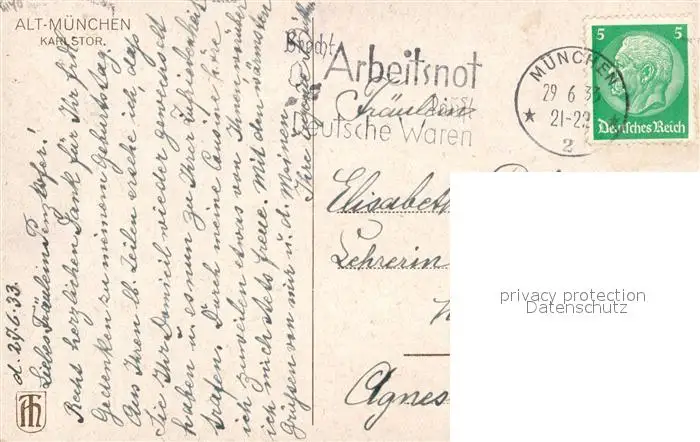 ALT-MÜNCHEN
KARLSTOR.
d. 27.6.33.
Liebes Fräulein
Recht herzlichen Dank für Ihr
Gedenken zu meinem Geburtstag.
Aus Ihren lb. Zeilen ersehe ich, daß
Sie Ihr Domizil wieder gewechselt
haben u. es nun zu Ihrer Zufriedenheit
Durch meine Cousine höre
ich zuweilen etwas von Ihnen worüber
ich mich stets freue. Mit den wärmsten
Grüßen von mir u. d. Meinen
Ihre
Arbeitsnot
Deutsche Waren
MÜNCHEN
29 6 33
21-22
2
5 5
Deutsches Reich
Fräulein
Elisabeth
Lehrerin
Agnes
privacy protection
Datenschutz